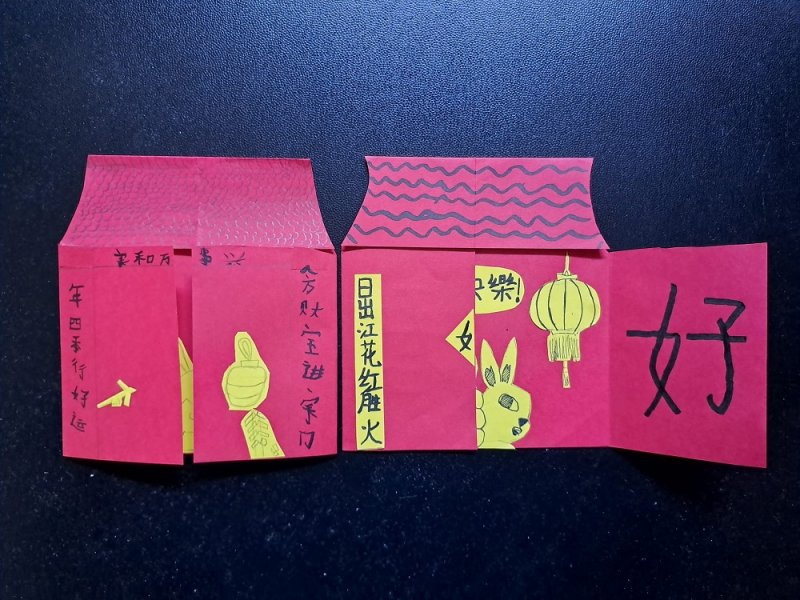 家和万事兴
年四季行好运
八方财宝进家门
日出江花红胜火
樂!
女
好